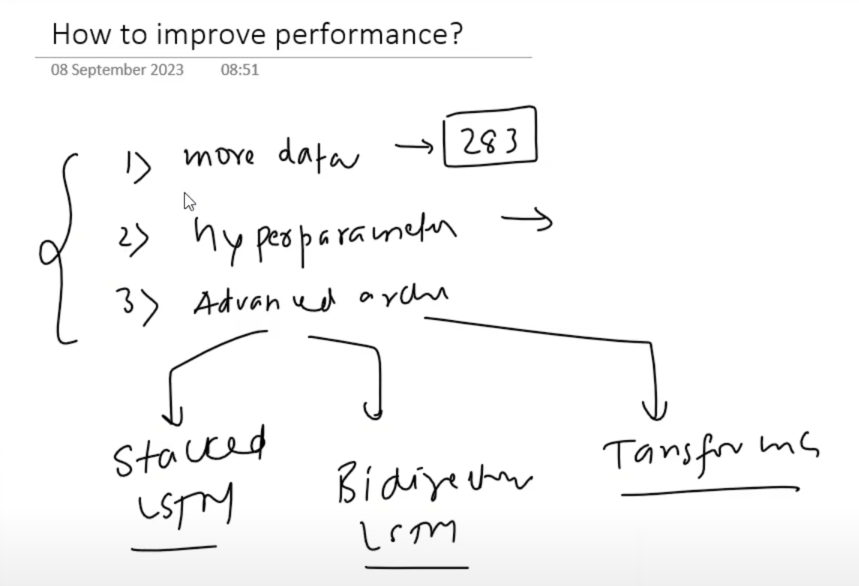 How to improve performance?
08 September 2023 08:51
1) more data → 283
2) hyperparameter →
3) Advanced archi
Stacked LSTM
Bidirection LSTM
Tansforms